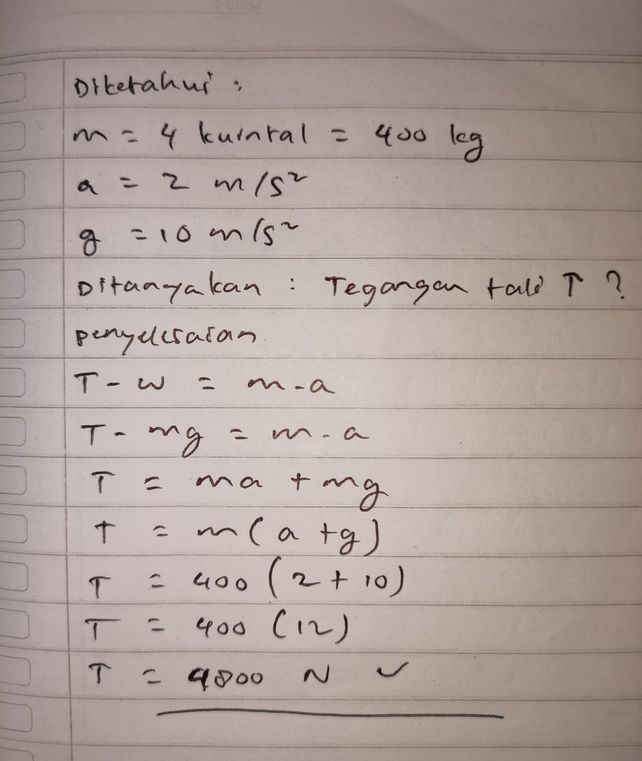 Diketahui :
m = 4 kuintal = 400 kg
a = 2 m/s²
g = 10 m/s²
Ditanyakan : Tegangan tali T ?
penyelesaian
T - w = m . a
T - mg = m . a
T = ma + mg
T = m(a + g)
T = 400 (2 + 10)
T = 400 (12)
T = 4800 N ✓